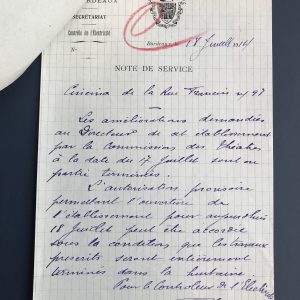 BORDEAUX
SECRÉTARIAT
Contrôle de l'Électricité
N°
Bordeaux, le 18 Juillet 1914
NOTE DE SERVICE
Cinéma de la Rue Francin n° 97
Les améliorations demandées
au Directeur de cet établissement
par la Commission des Théâtres
à la date du 17 Juillet sont en
partie terminées.
L'autorisation provisoire
permettant l'ouverture de
l'établissement pour aujourd'hui
18 juillet peut être accordée
sous la condition que les travaux
prescrits seront entièrement
terminés dans la huitaine.
Pour le Contrôleur de l'